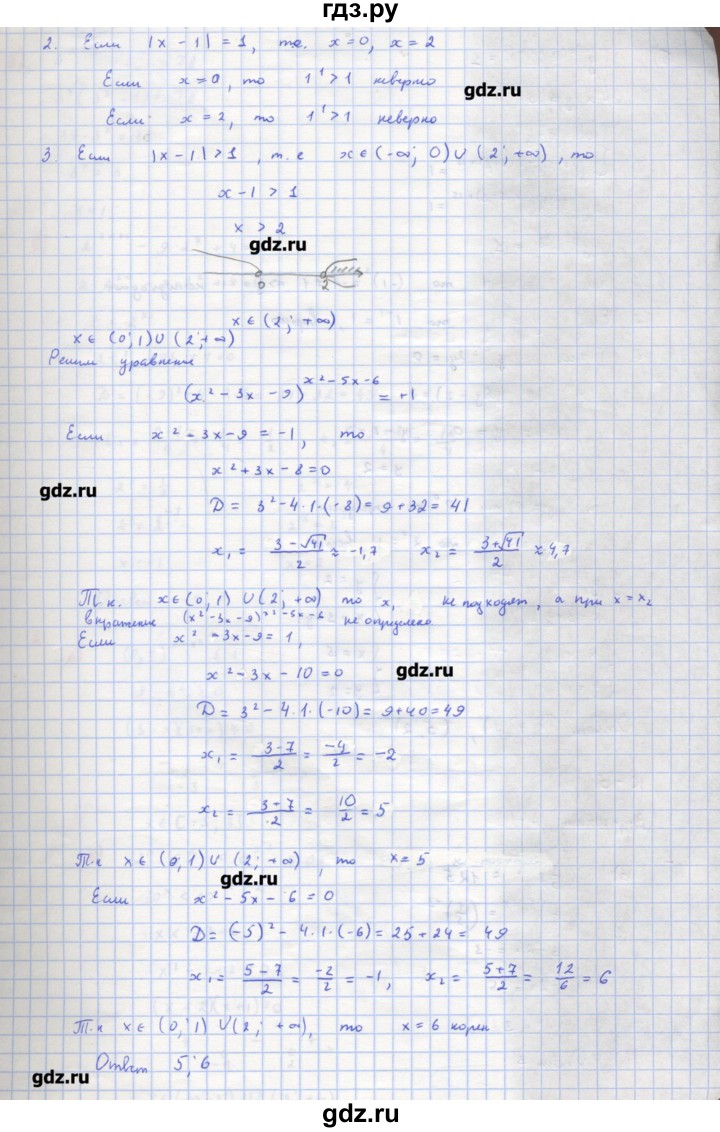 гдз.ру
2. Если |x - 1| = 1, т.е. x = 0, x = 2
Если x = 0, то 1¹ > 1 неверно
gdz.ru
Если x = 2, то 1¹ > 1 неверно
3. Если |x - 1| > 1, т.е x ∈ (-∞; 0) ∪ (2; +∞), то
x - 1 > 1
x > 2
gdz.ru
0 2
x ∈ (2; +∞)
x ∈ (0; 1) ∪ (2; +∞)
Решим уравнение
(x² - 3x - 9)^(x² - 5x - 6) = +1
Если x² - 3x - 9 = -1, то
x² + 3x - 8 = 0
gdz.ru
D = 3² - 4·1·(-8) = 9 + 32 = 41
x₁ = (3 - √41)/2 ≈ -1,7 x₂ = (3 + √41)/2 ≈ 4,7
Т.к. x ∈ (0; 1) ∪ (2; +∞) то x₁ не подходят, а при x = x₂
выражение (x² - 3x - 9)^(x² - 5x - 6) не определено
Если x² - 3x - 9 = 1,
x² - 3x - 10 = 0
gdz.ru
D = 3² - 4·1·(-10) = 9 + 40 = 49
x₁ = (3 - 7)/2 = (-4)/2 = -2
x₂ = (3 + 7)/2 = 10/2 = 5
Т.к x ∈ (0; 1) ∪ (2; +∞), то x = 5
gdz.ru
Если x² - 5x - 6 = 0
D = (-5)² - 4·1·(-6) = 25 + 24 = 49
x₁ = (5 - 7)/2 = (-2)/2 = -1, x₂ = (5 + 7)/2 = 12/6 = 6
Т.к x ∈ (0; 1) ∪ (2; +∞), то x = 6 корен
Ответ 5; 6
gdz.ru
gdz.ru